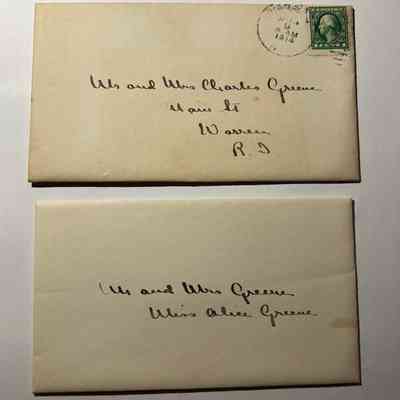 Mr and Mrs Charles Greene
Main St
Warren
R. I
Mr and Mrs Greene
Miss Alice Greene